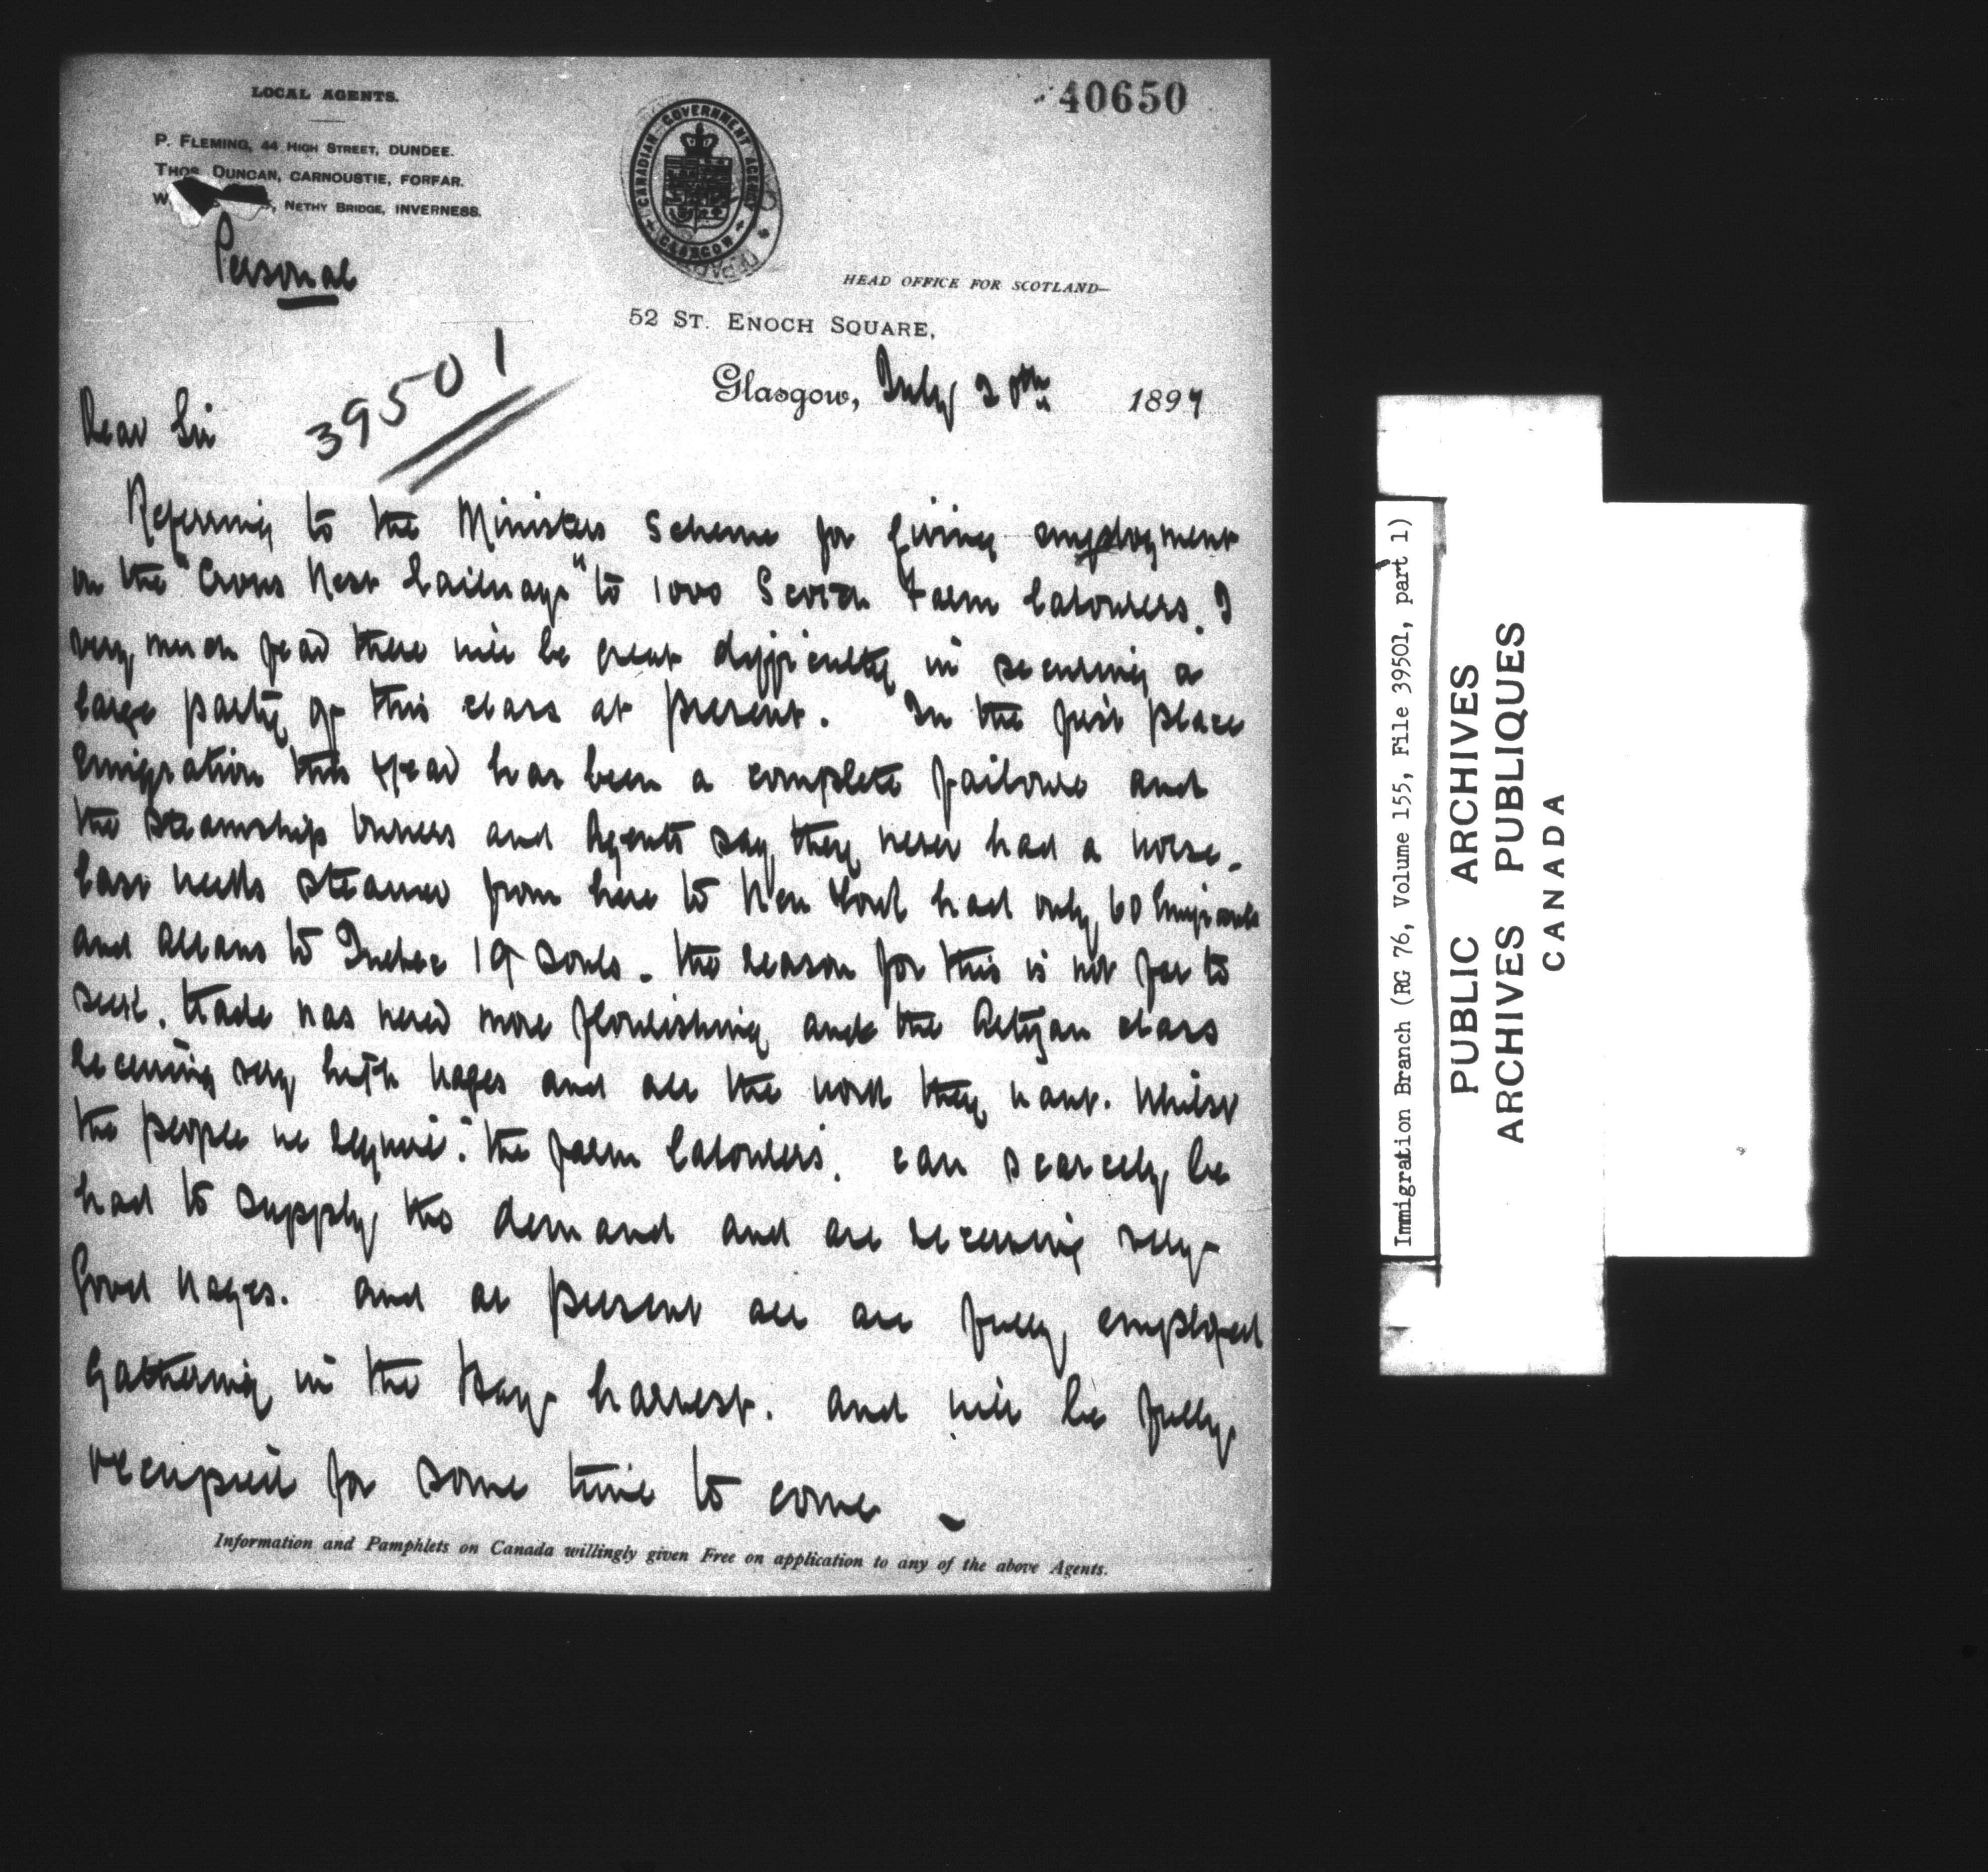 40650
LOCAL AGENTS.
P. FLEMING, 44 HIGH STREET, DUNDEE.
THOS. DUNCAN, CARNOUSTIE, FORFAR.
W , NETHY BRIDGE, INVERNESS.
CANADIAN GOVERNMENT AGENCY
GLASGOW
Personal
HEAD OFFICE FOR SCOTLAND—
52 ST. ENOCH SQUARE,
Glasgow, July 20th 1897
39501
Dear Sir
Referring to the Ministers Scheme for giving employment
on the "Crows Nest Railway" to 1000 Scotch Farm labourers. I
very much fear there will be great difficulty in securing a
large party of this class at present. In the first place
Emigration this year has been a complete failure and
the Steamship Owners and Agents say they never had a worse.
Last weeks steamer from here to New York had only 60 Emigrants
and Allans to Quebec 19 souls. The reason for this is not far to
seek. trade was never more flourishing and the Artizan class
receiving very high wages and all the work they want. Whilst
the people we require. "the farm labourers. can scarcely be
had to supply the demand and are receiving very
good wages. and at present all are fully employed
gathering in the Hay harvest. and will be fully
occupied for some time to come
Information and Pamphlets on Canada willingly given Free on application to any of the above Agents.
Immigration Branch (RG 76, Volume 155, File 39501, part 1)
PUBLIC ARCHIVES
ARCHIVES PUBLIQUES
CANADA